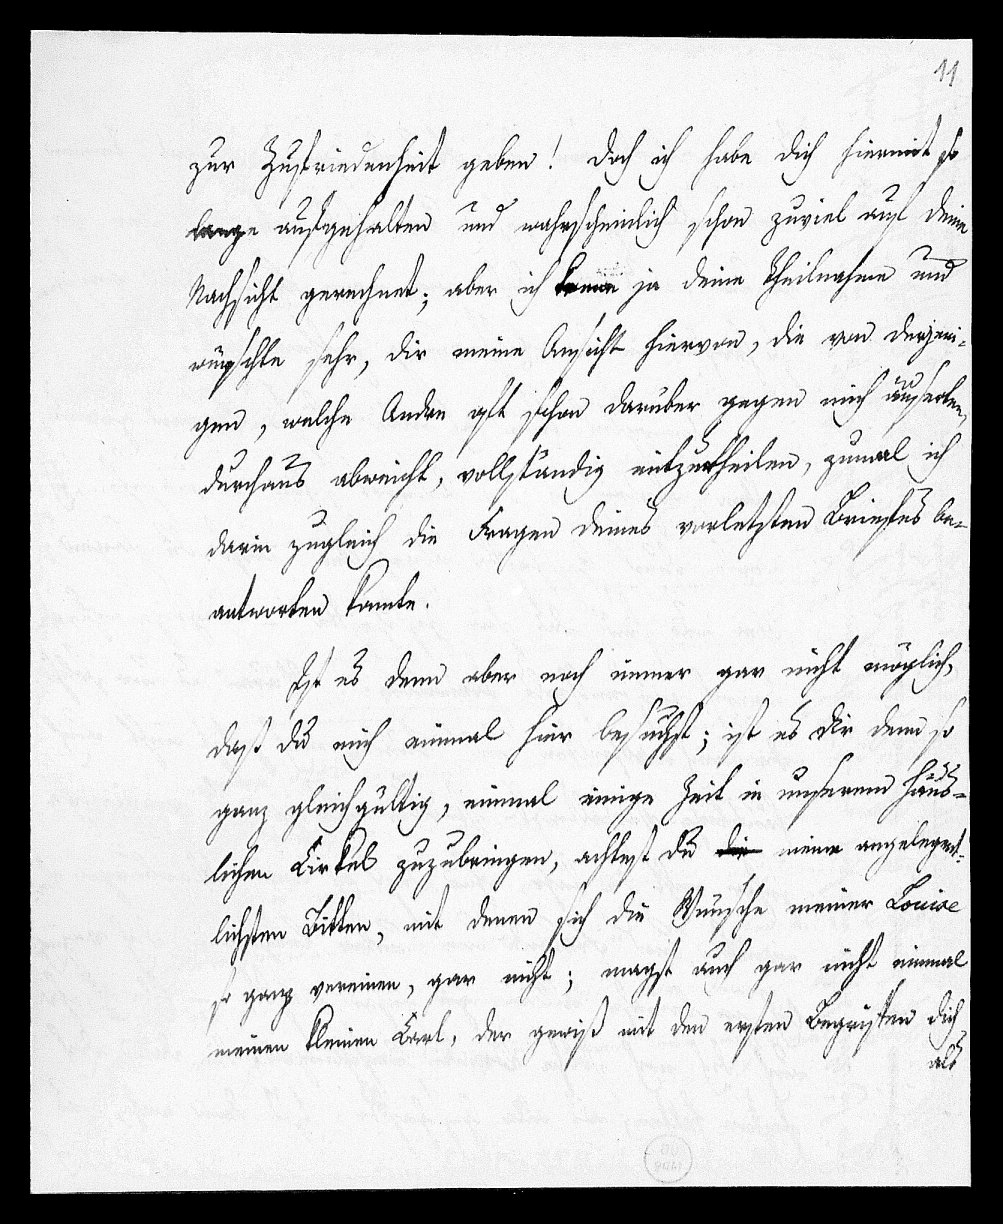 11
zur Zufriedenheit geben! Doch ich habe dich hiermit so
lange aufgehalten und wahrscheinlich schon zuviel auf deine
Nachsicht gerechnet; aber ich kenne ja deine Theilnahme und
wünschte sehr, dir meine Ansicht hiervon, die von derjeni-
gen, welche Andre oft schon darüber gegen mich äußerten,
durchaus abweicht, vollständig mitzutheilen, zumal ich
darin zugleich die Fragen deines vorletzten Briefes be-
antworten konnte.
Ist es denn aber noch immer gar nicht möglich,
daß du mich einmal hier besuchst; ist es dir denn so
ganz gleichgültig, einmal einige Zeit in unserem häus-
lichen Cirkel zuzubringen, achtest du die meine angelegent-
lichsten Bitten, mit denen sich die Wünsche meiner Louise
so ganz vereinen, gar nicht; magst auch gar nicht einmal
meinen kleinen Carl, der gewiß mit den ersten Begriffen dich
als